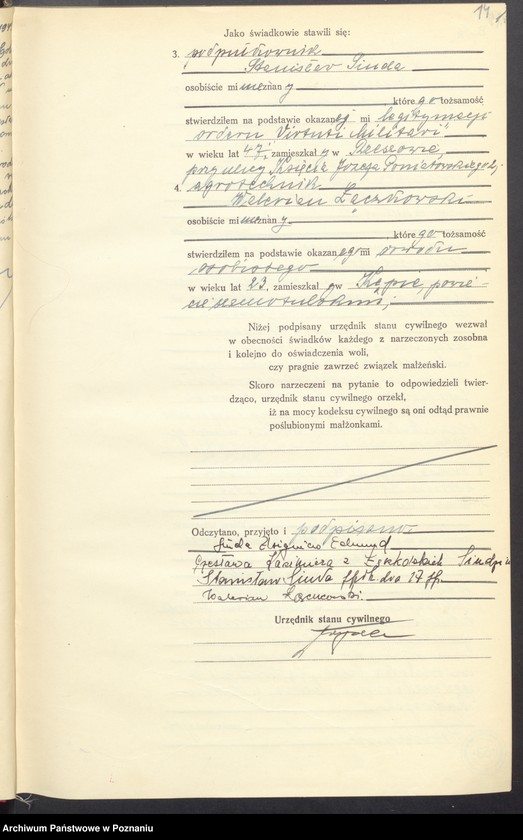 14
Jako świadkowie stawili się:
3. podpułkownik
Stanisław Siuda
osobiście mi nieznany
którego tożsamość
stwierdziłem na podstawie okazanej mi legitymacji
orderu "Virtuti Militari"
w wieku lat 47, zamieszkały w Rzeszowie,
przy ulicy Księcia Józefa Poniatowskiego
4. agrotechnik
Walerian Łączkowski
osobiście mi nieznany
którego tożsamość
stwierdziłem na podstawie okazanego mi dowodu
osobistego
w wieku lat 23, zamieszkały w powie-
cie szamotulskim;
Niżej podpisany urzędnik stanu cywilnego wezwał
w obecności świadków każdego z narzeczonych zosobna
i kolejno do oświadczenia woli,
czy pragnie zawrzeć związek małżeński.
Skoro narzeczeni na pytanie to odpowiedzieli twier-
dząco, urzędnik stanu cywilnego orzekł,
iż na mocy kodeksu cywilnego są oni odtąd prawnie
poślubionymi małżonkami.
Odczytano, przyjęto i podpisano.
Siuda Zbigniew Edmund
Czesława Kazimiera z Łączkowskich Siudzina
Stanisław Siuda ppłk. dca 17 pp.
Walerian Łączkowski.
Urzędnik stanu cywilnego
Archiwum Państwowe w Poznaniu